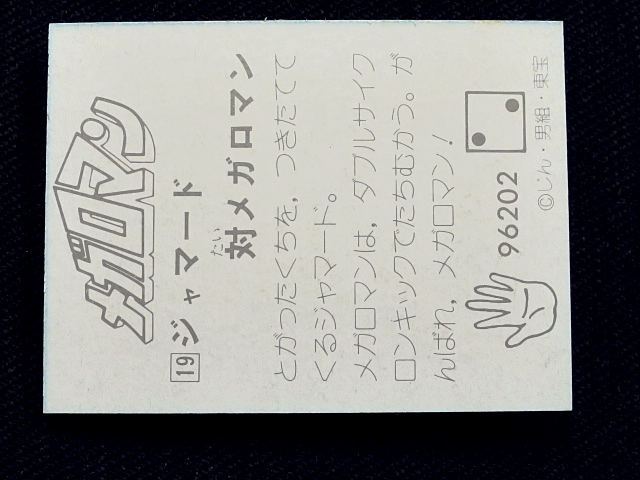 メガロマン
19 ジャマード
対メガロマン
たい
とがったくちを，つきたてて
くるジャマード。
メガロマンは，ダブルサイク
ロンキックでたちむかう。が
んばれ，メガロマン！
96202
©じん・男組・東宝